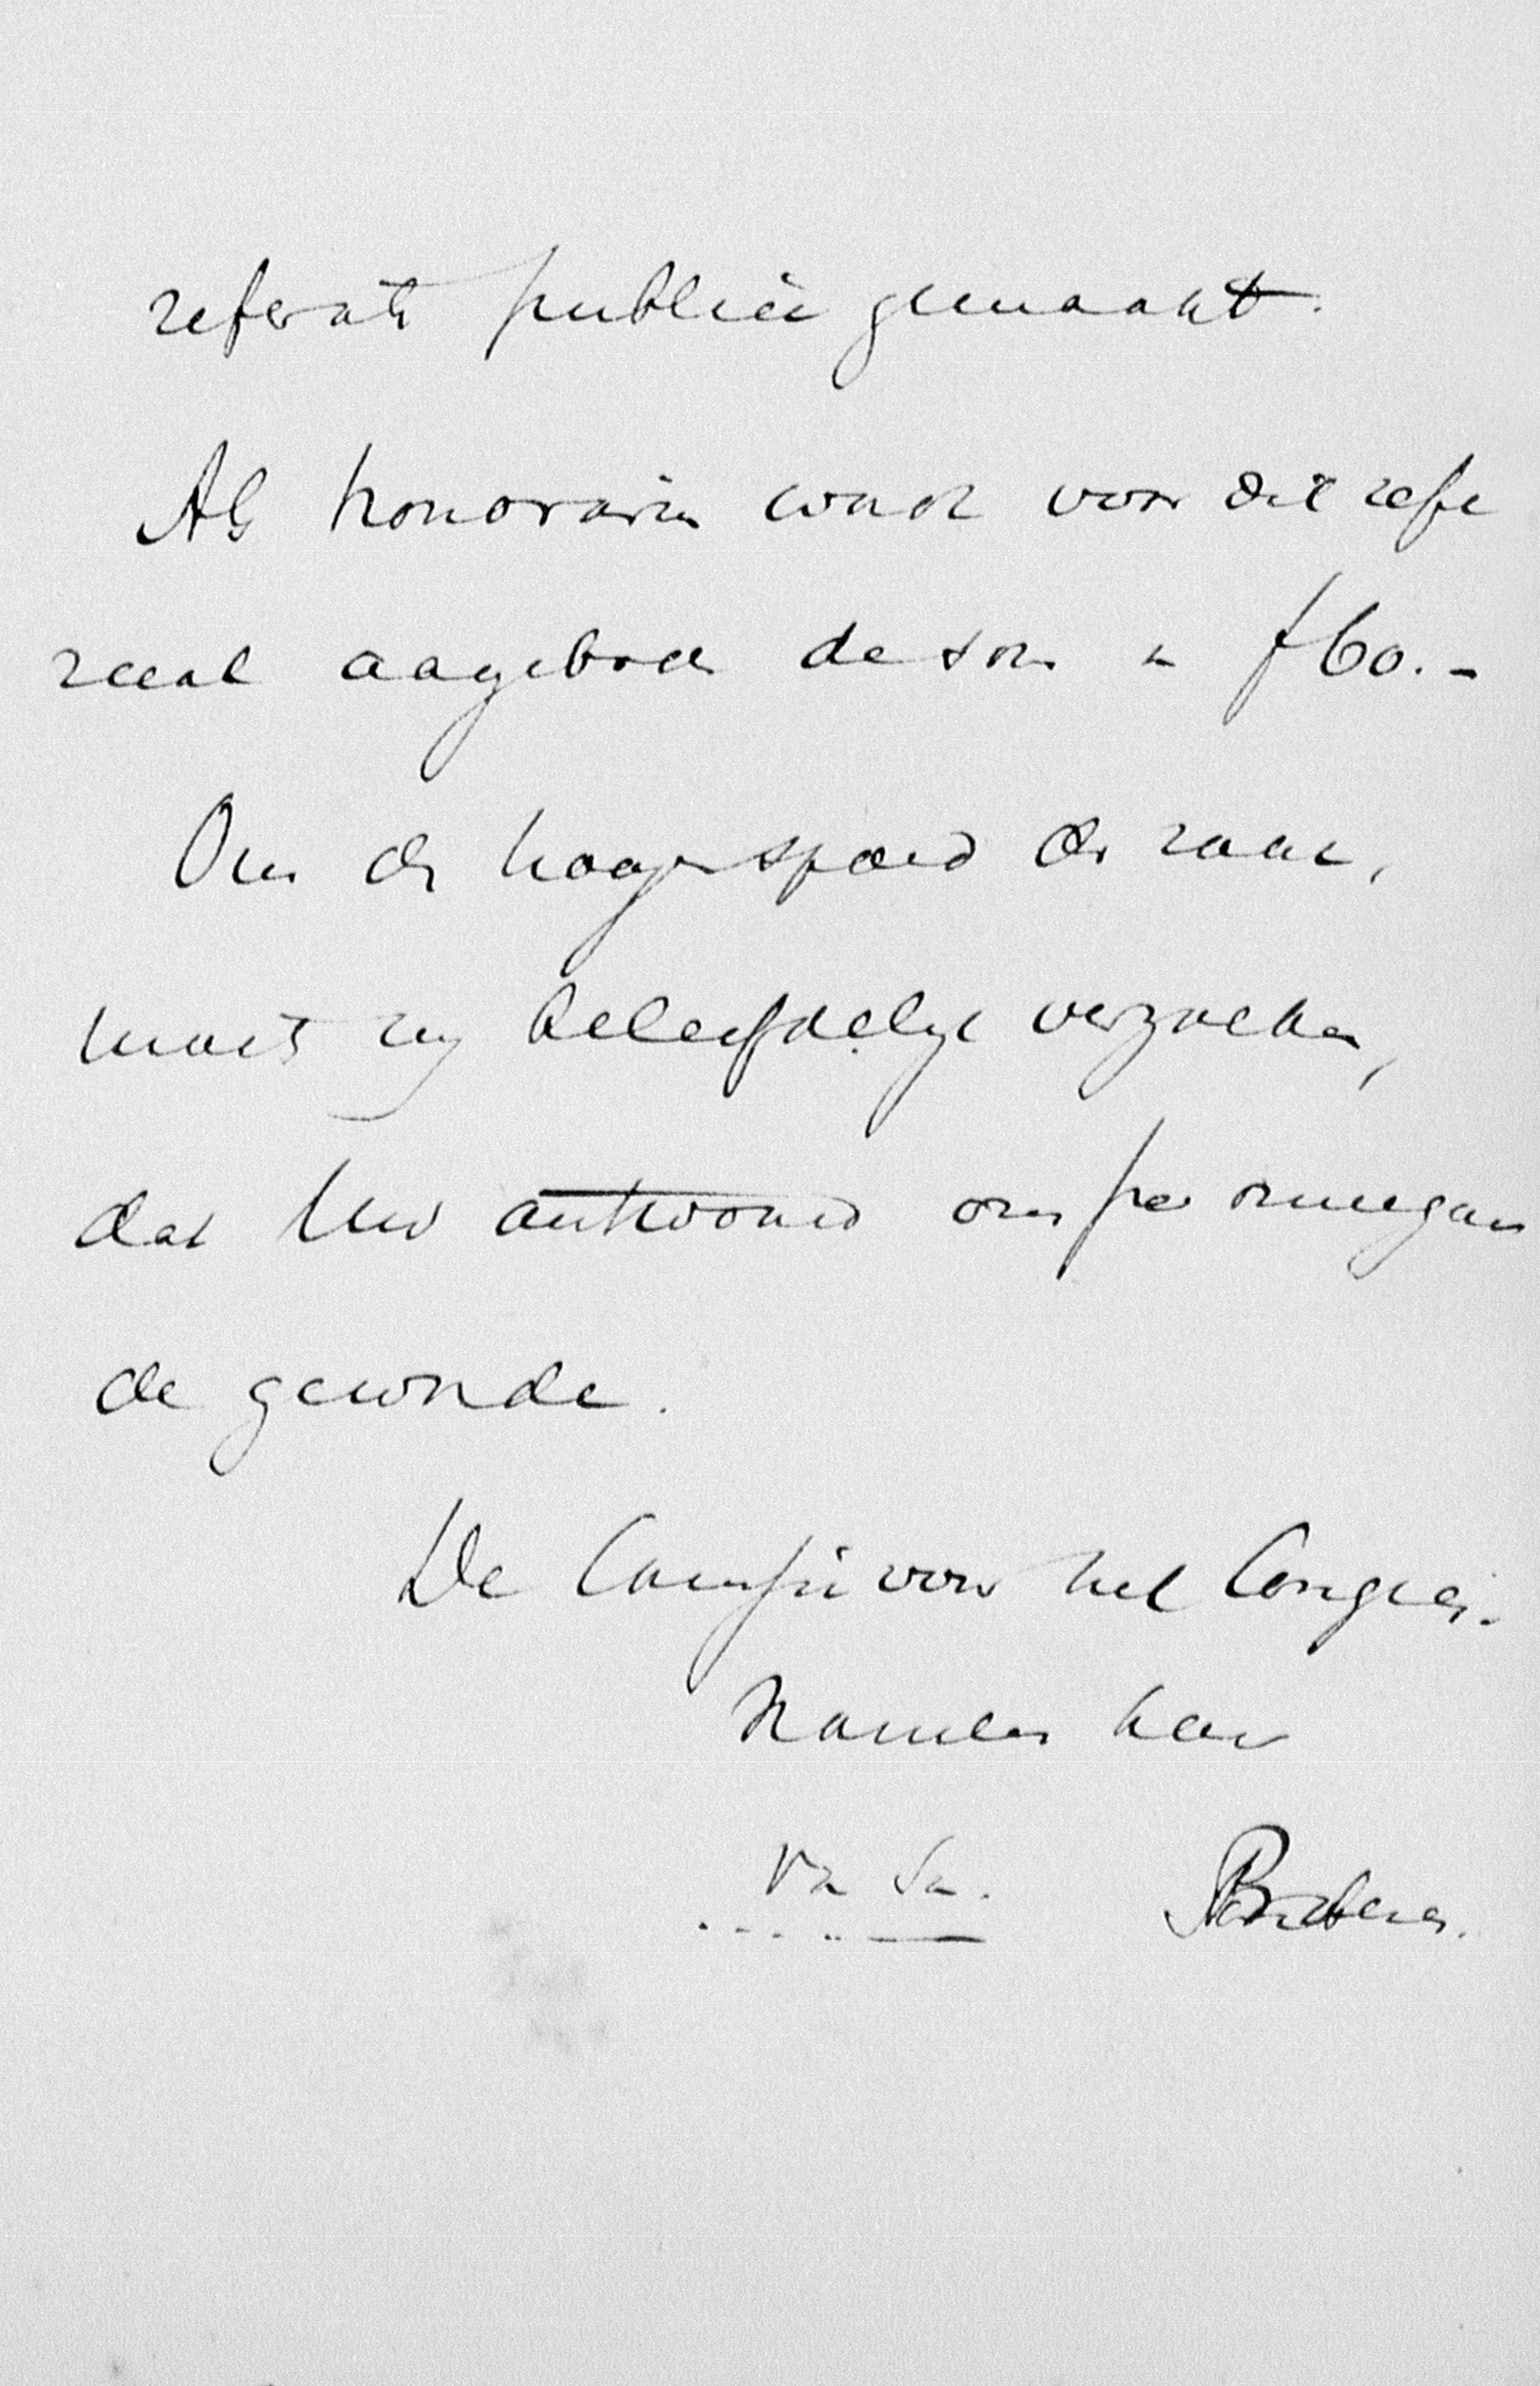 referaten publiek gemaakt.
Als honorarium wordt voor dit refe
reeren aangeboden de som van f 60.-
Om den hoogen spoed der zaak,
moet zij beleefdelijk verzoeken,
dat Uw antwoord ons per ommegaan
de geworde.
De Commissie voor het Congres.
Namens haar